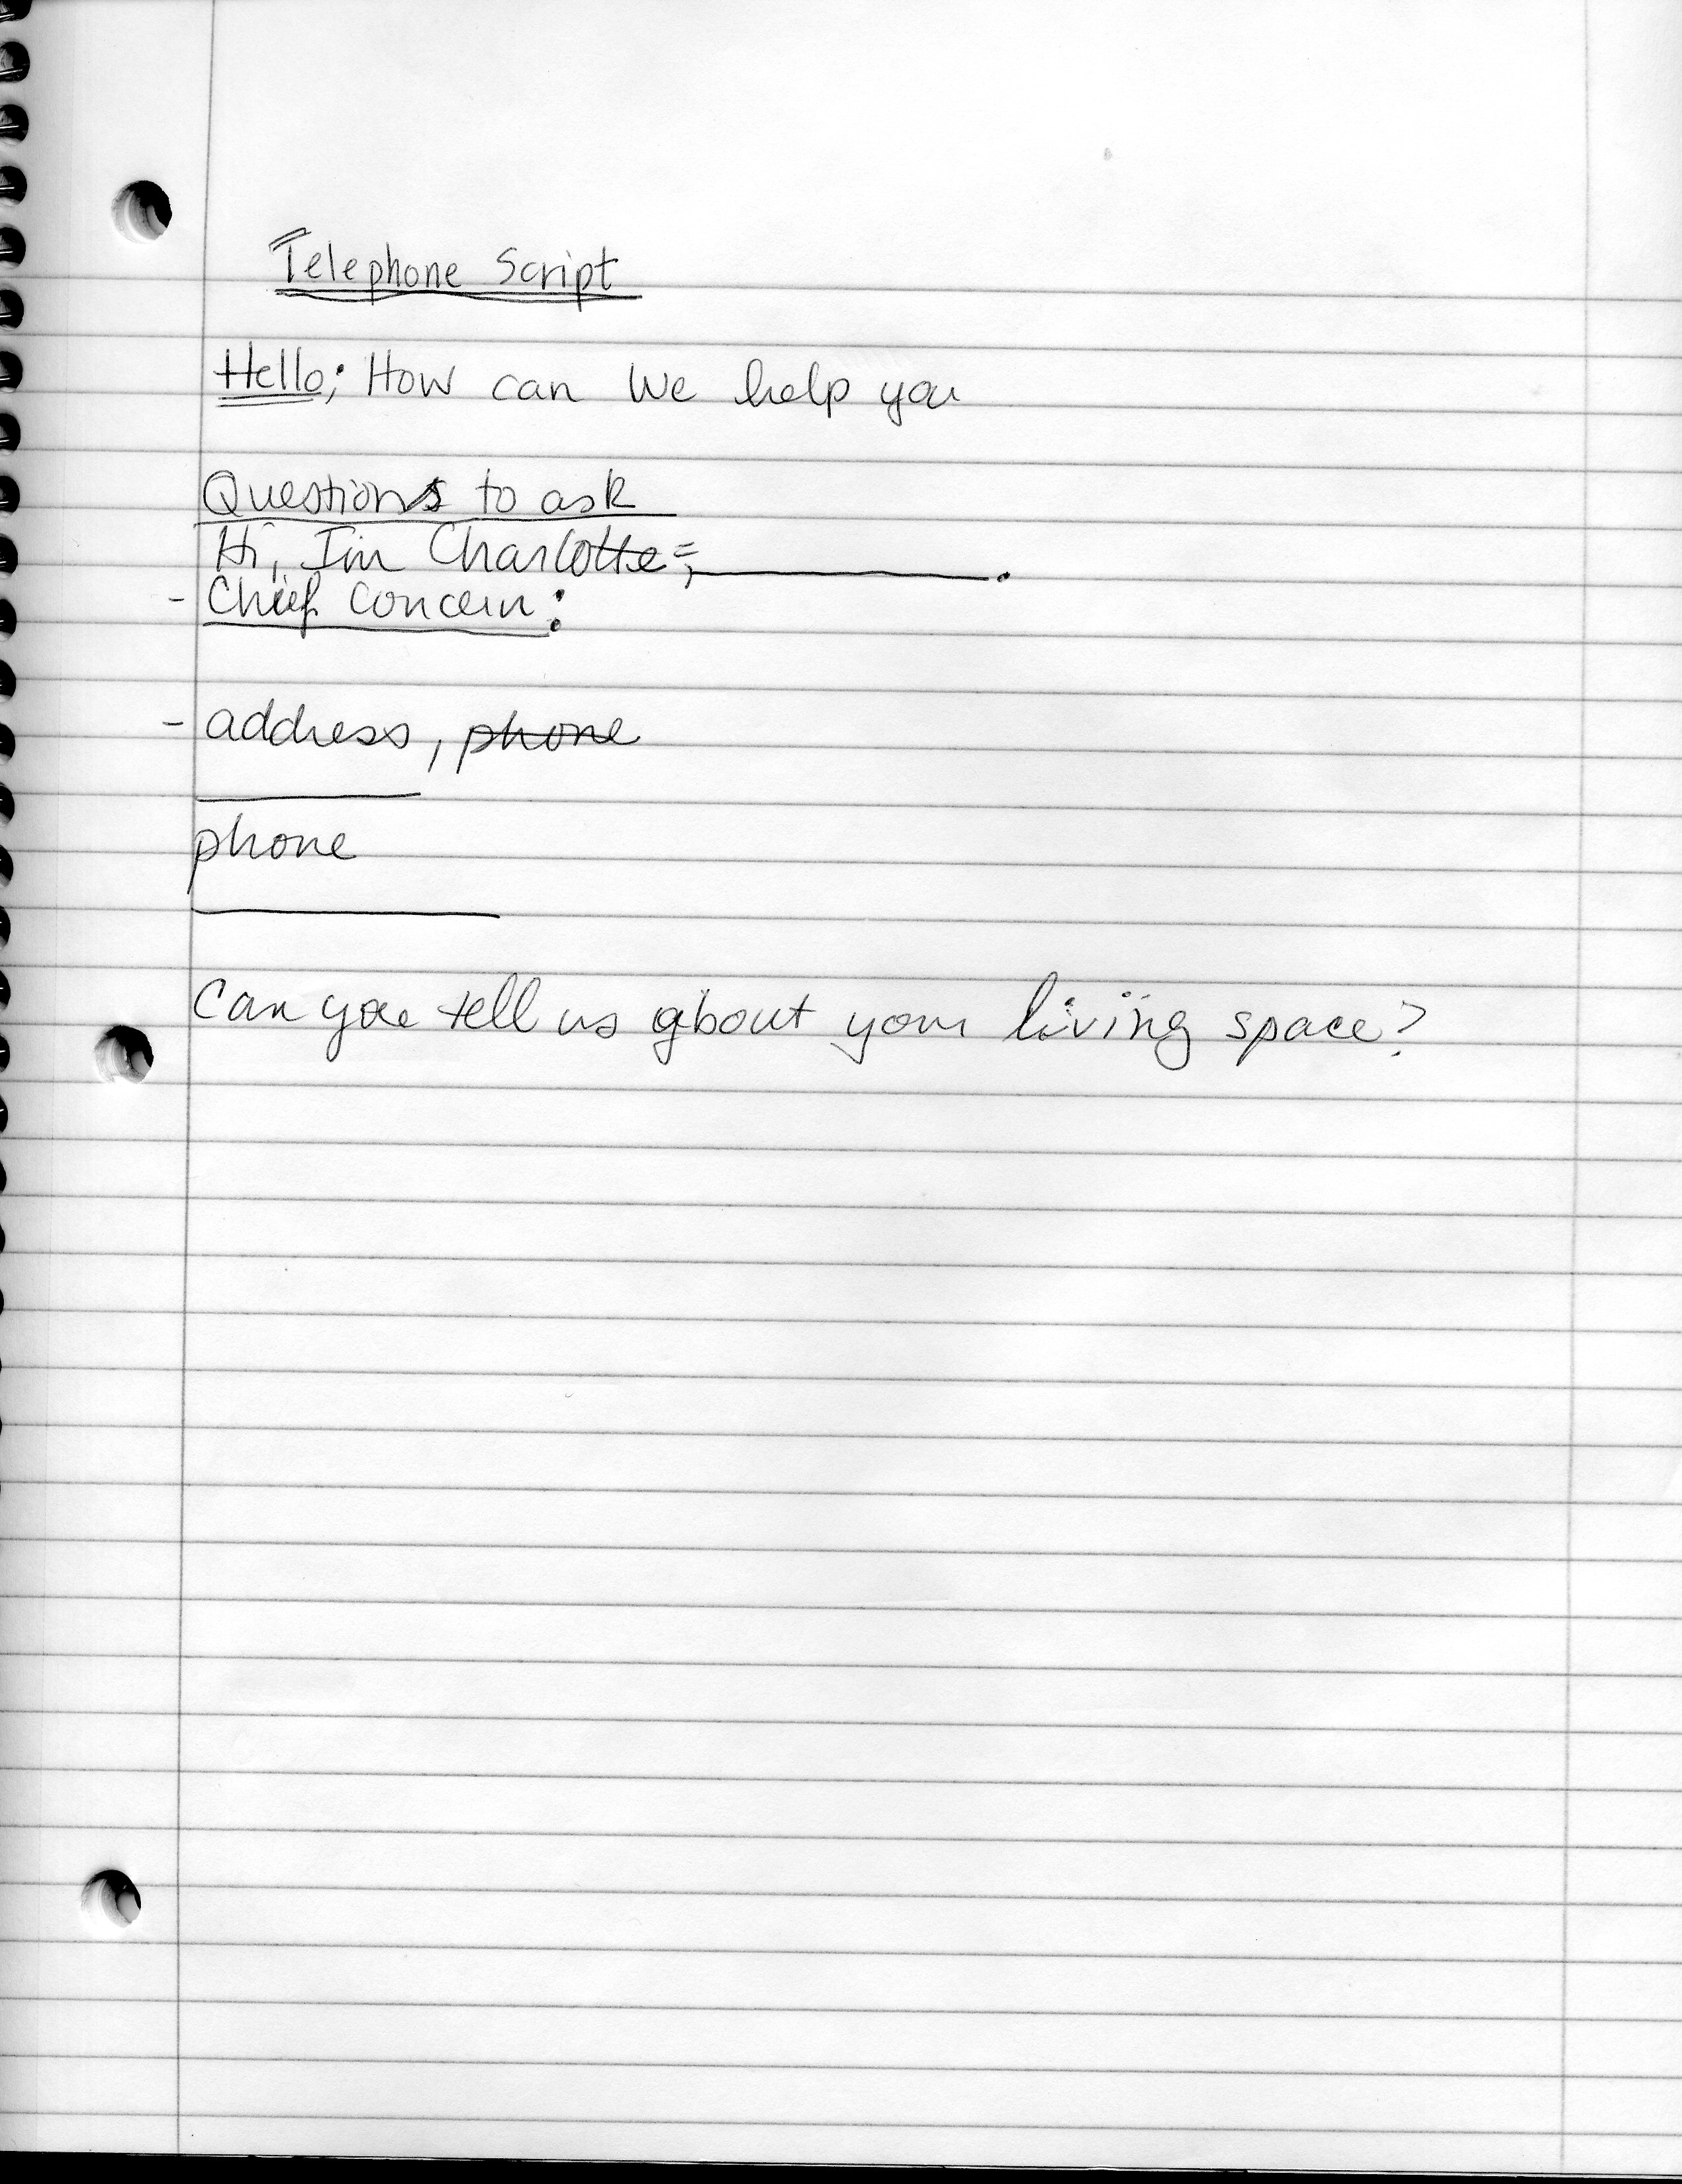 Telephone Script
Hello; How can We help you
Questions to ask
Hi, I'm Charlotte, __________.
- Chief Concern:
- address, phone
phone
Can you tell us about your living space?